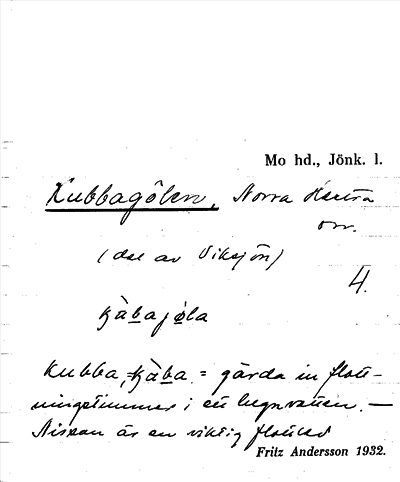 Mo hd., Jönk. l.
Kubbagölen, Norra
(del av Viksjön)
4.
kàbajøla
Kubba, kàba = gärda in flott-
ningstimmer i ett lugnvatten. —
Nissan är en viktig flottled
Fritz Andersson 1932.